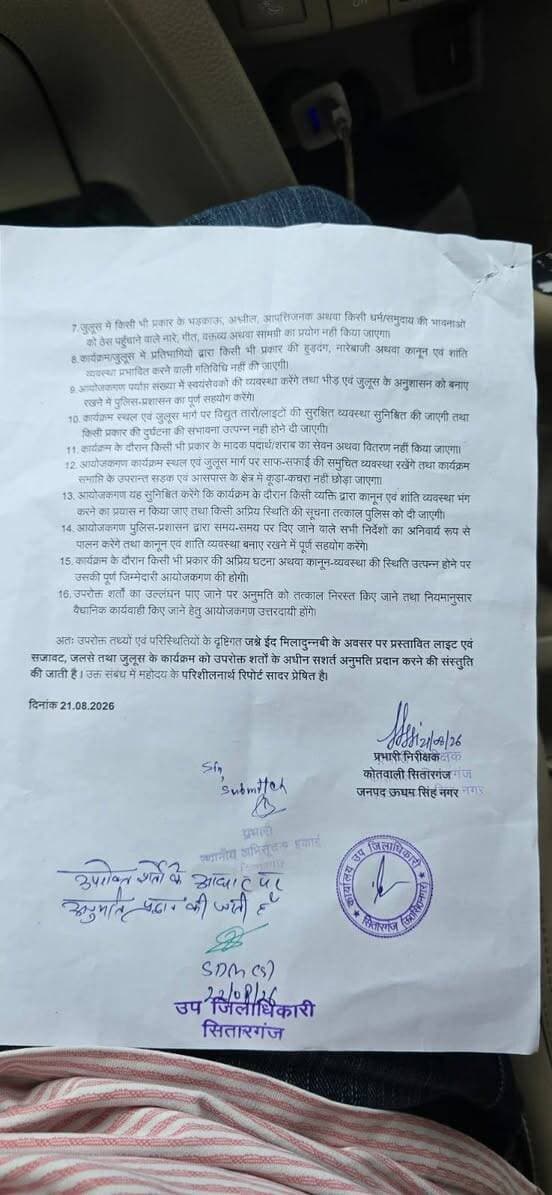 7. जुलूस में किसी भी प्रकार के भड़काऊ, अश्लील, आपत्तिजनक अथवा किसी धर्म/समुदाय की भावनाओं
को ठेस पहुँचाने वाले नारे, गीत, वक्तव्य अथवा सामग्री का प्रयोग नही किया जाएगा।
8. कार्यक्रम/जुलूस में प्रतिभागियों द्वारा किसी भी प्रकार की हुडदंग, नारेबाजी अथवा कानून एवं शांति
व्यवस्था प्रभावित करने वाली गतिविधि नहीं की जाएगी।
9. आयोजकगण पर्याप्त संख्या में स्वयंसेवकों की व्यवस्था करेंगे तथा भीड़ एवं जुलूस के अनुशासन को बनाए
रखने में पुलिस-प्रशासन का पूर्ण सहयोग करेंगे।
10. कार्यक्रम स्थल एवं जुलूस मार्ग पर विद्युत तारों/लाइटों की सुरक्षित व्यवस्था सुनिश्चित की जाएगी तथा
किसी प्रकार की दुर्घटना की संभावना उत्पन्न नही होने दी जाएगी।
11. कार्यक्रम के दौरान किसी भी प्रकार के मादक पदार्थ/शराब का सेवन अथवा वितरण नहीं किया जाएगा।
12. आयोजकगण कार्यक्रम स्थल एवं जुलूस मार्ग पर साफ-सफाई की समुचित व्यवस्था रखेंगे तथा कार्यक्रम
समाप्ति के उपरान्त सडक एवं आसपास के क्षेत्र में कूड़ा-कचरा नही छोड़ा जाएगा।
13. आयोजकगण यह सुनिश्चित करेंगे कि कार्यक्रम के दौरान किसी व्यक्ति द्वारा कानून एवं शांति व्यवस्था भंग
करने का प्रयास न किया जाए तथा किसी अप्रिय स्थिति की सूचना तत्काल पुलिस को दी जाएगी।
14. आयोजकगण पुलिस-प्रशासन द्वारा समय-समय पर दिए जाने वाले सभी निर्देशों का अनिवार्य रूप से
पालन करेंगे तथा कानून एवं शांति व्यवस्था बनाए रखने में पूर्ण सहयोग करेंगे।
15. कार्यक्रम के दौरान किसी भी प्रकार की अप्रिय घटना अथवा कानून-व्यवस्था की स्थिति उत्पन्न होने पर
उसकी पूर्ण जिम्मेदारी आयोजकगण की होगी।
16. उपरोक्त शर्तों का उल्लंघन पाए जाने पर अनुमति को तत्काल निरस्त किए जाने तथा नियमानुसार
वैधानिक कार्यवाही किए जाने हेतु आयोजकगण उत्तरदायी होंगे।
अतः उपरोक्त तथ्यों एवं परिस्थितियों के दृष्टिगत जश्ने ईद मिलादुन्नबी के अवसर पर प्रस्तावित लाइट एवं
सजावट, जलसे तथा जुलूस के कार्यक्रम को उपरोक्त शर्तों के अधीन सशर्त अनुमति प्रदान करने की संस्तुति
की जाती है। उक्त संबंध में महोदय के परिशीलनार्थ रिपोर्ट सादर प्रेषित है।
दिनांक 21.08.2026
21/08/26
प्रभारी निरीक्षक
कोतवाली सितारगंज
जनपद ऊधम सिंह नगर
Sir,
Submitted
प्रभारी
स्थानीय अभिसूचना इकाई
उपरोक्त शर्तों के आधार पर
अनुमति प्रदान की जाती है
कार्यालय उप जिलाधिकारी
सितारगंज
SDM
22/08/26
उप जिलाधिकारी
सितारगंज